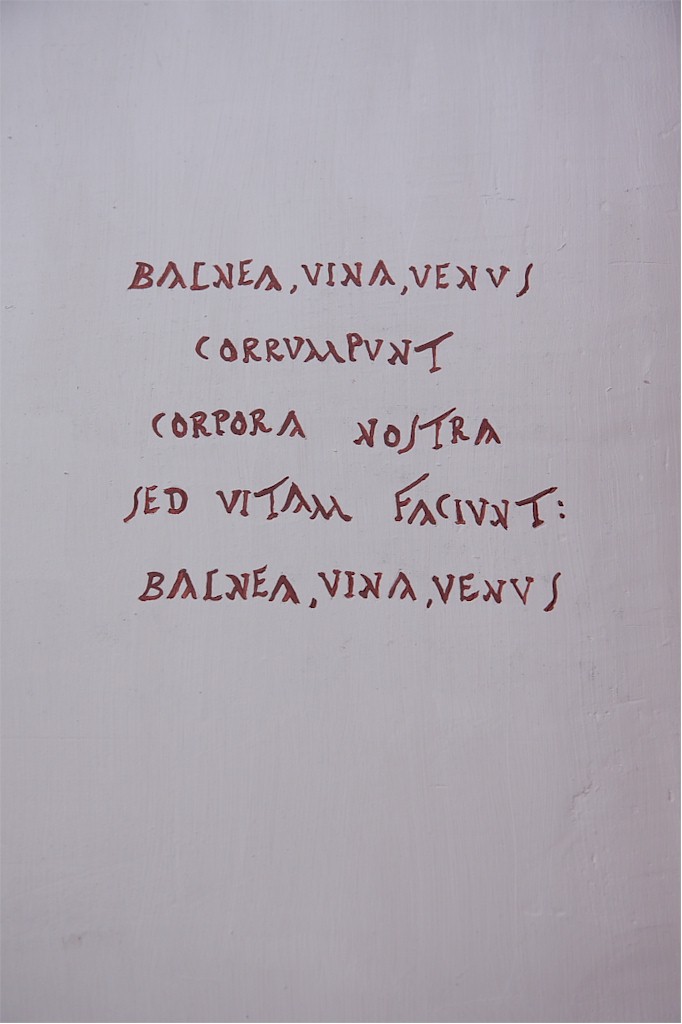 BALNEA, VINA, VENUS
CORRUMPUNT
CORPORA NOSTRA
SED VITAM FACIUNT:
BALNEA, VINA, VENUS